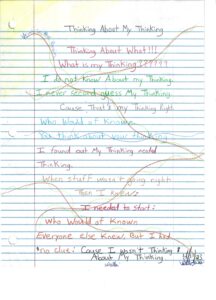 Thinking About My Thinking
Thinking About What!!!
What is my Thinking??????
I do not know About my Thinking.
I never second guess My Thinking
Cause That's my Thinking Right
Who Would of Known
You think about your thinking
I found out My Thinking needed
Thinking.
When stuff wasn't going right
Then I knew
I needed to start:
Who Would of Known
Everyone else Knew, But I had
no clue! Cause I wasn't Thinking
About My Thinking.